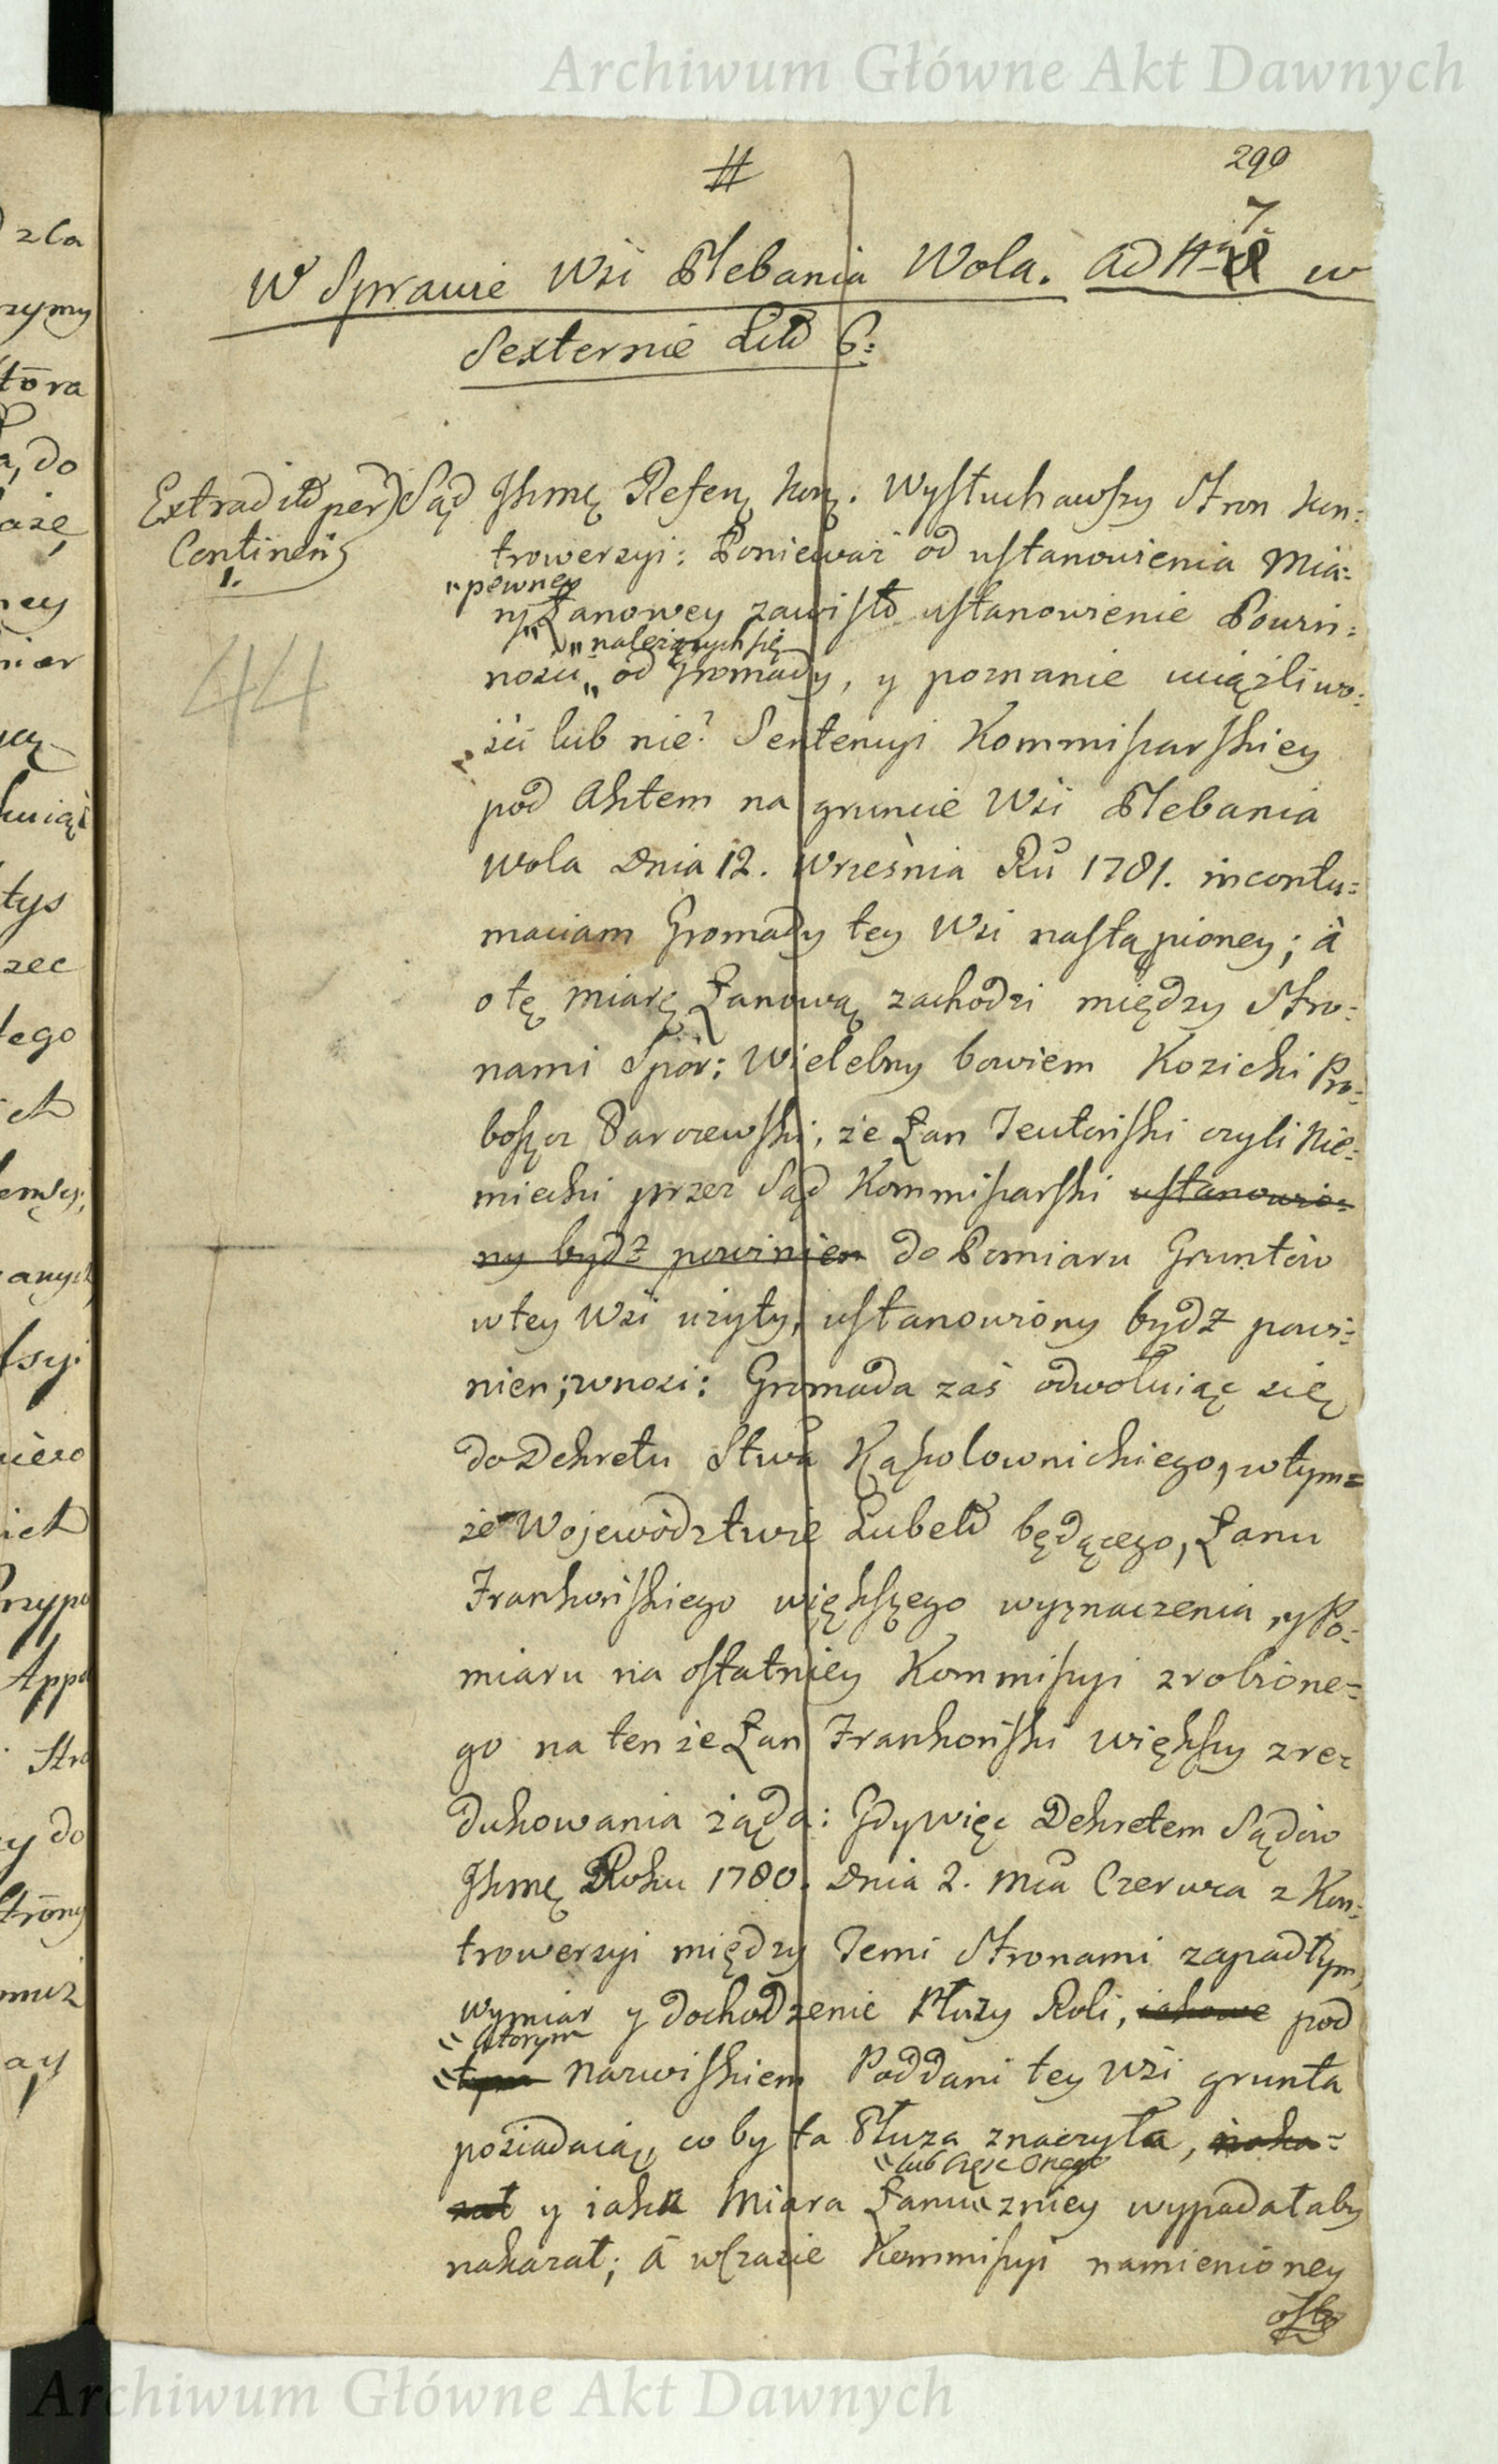 Archiwum Główne Akt Dawnych
#
290
7.
W Sprawie Wsi Plebania Wola. Ad N w
Sexternie Litt
Extradit per
Continen
1.
44
Sąd JKmę Refeŋ Koŋ. Wysłuchawszy Stron Kon:
trowersyi: Ponieważ od ustanowienia Mia:
"pewney
ry Łanowey zawisło ustanowienie Powin:
"należących się
ności od Gromady, y poznanie uciążliwo:
ści lub nie? Sentencyi Kommissarskiey
pod Aktem na gruncie Wsi Plebania
Wola Dnia 12. Września Ru 1781. in contu=
maciam Gromady tey Wsi nastąpioney; à
o tę miarę Łanową zachodzi między Stro:
nami Spór: Wielebny bowiem Kozicki Pro:
boszcz Parczewski, że Łan Teutoński czyli Nie:
miecki przez Sąd Kommissarski ustanowio:
ny bydź powinien do Pomiaru Gruntów
w tey Wsi użyty, ustanowiony bydź powi:
nien; wnosi: Gromada zaś odwołuiąc się
do Dekretu Stwa Kąkolownickiego, w tym=
że Województwie Lubel będącego, Łanu
Frankońskiego większego wyznaczenia, y Po:
miaru na ostatniey Kommissyi zrobione=
go na ten że Łan Frankoński większy zre=
dukowania żąda: Gdy więc Dekretem Sądów
JKmę Roku 1780. Dnia 2. Mca Czerwca z Kon:
trowersyi między Temi Stronami zapadłym,
wymiar y dochodzenie Płuzy Roli, iakowe pod
"którym
tym Nazwiskiem Poddani tey Wsi grunta
posiadaią, co by ta Płuza znaczyła, naka=
"lub częsc Onego
zał y iaka Miara Łanu z niey wypadałaby
nakazał; à w Czasie Kommissyi namienioney
Archiwum Główne Akt Dawnych